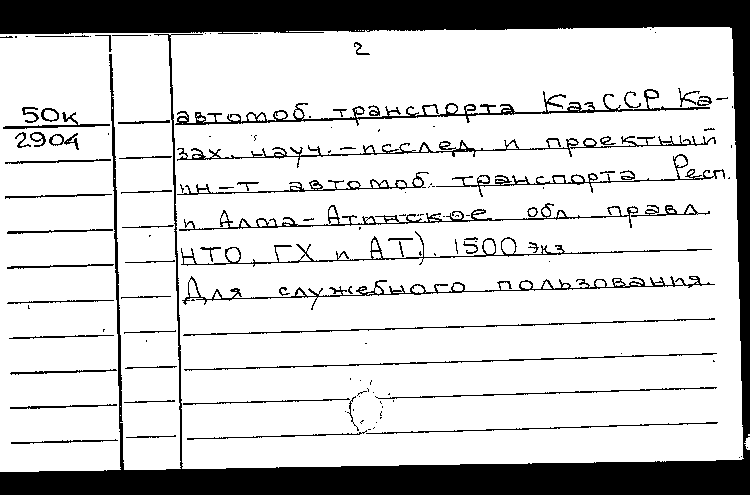 2
50к
2904
автомоб. транспорта КазССР. Ка-
зах. науч.-исслед. и проектный
ин-т автомоб. транспорта. Респ.
и Алма-Атинское обл. правл.
НТО, ГХ и АТ). 1500 экз.
Для служебного пользования.